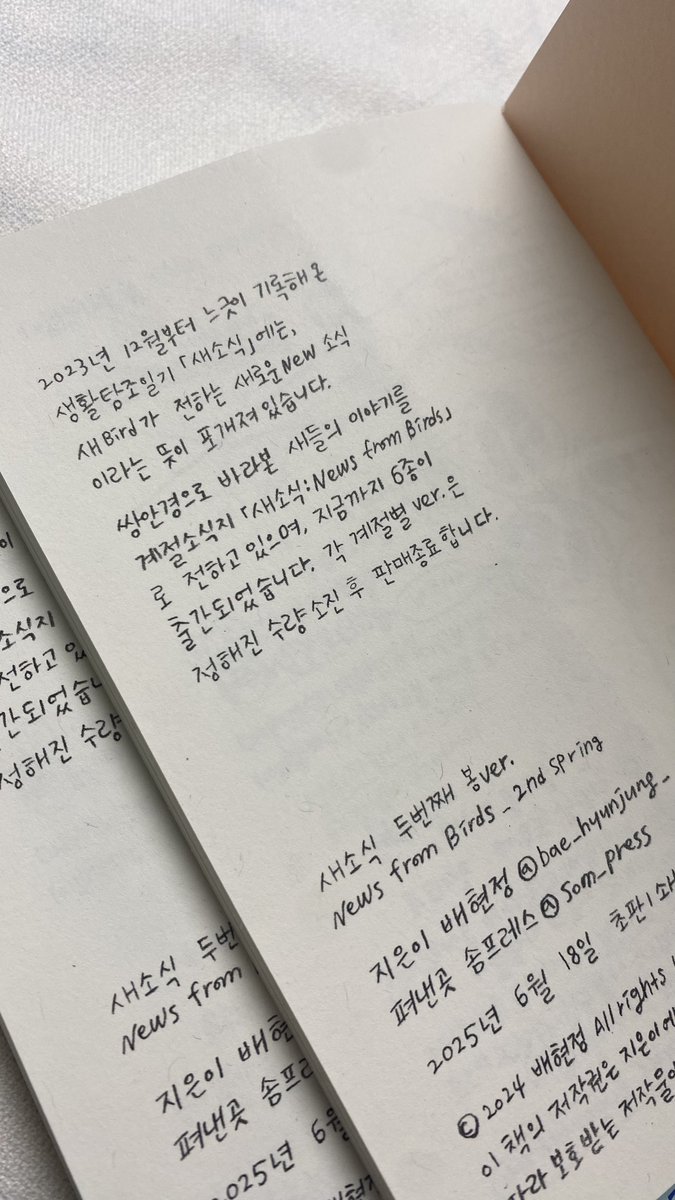 2023년 12월부터 느긋이 기록해온
생활탐조일기 「새소식」에는,
새Bird가 전하는 새로운New 소식
이라는 뜻이 포개져 있습니다.
쌍안경으로 바라본 새들의 이야기를
계절소식지 「새소식: News from Birds」
로 전하고 있으며, 지금까지 6종이
출간되었습니다. 각 계절별 ver.은
정해진 수량 소진 후 판매종료합니다.
새소식 두번째 봄ver.
News from Birds _ 2nd spring
지은이 배현정 @bae_hyunjung_
펴낸곳 솜프레스 @som_press
2025년 6월 18일 초판1쇄
© 2024 배현정 All rights
이 책의 저작권은 지은이에
따라 보호받는 저작물
이
으로
소식지
전하고 있
간되었습니
정해진 수량
새소식 두번
News from
지은이 배현
펴낸곳 솜프레
2025년 6월